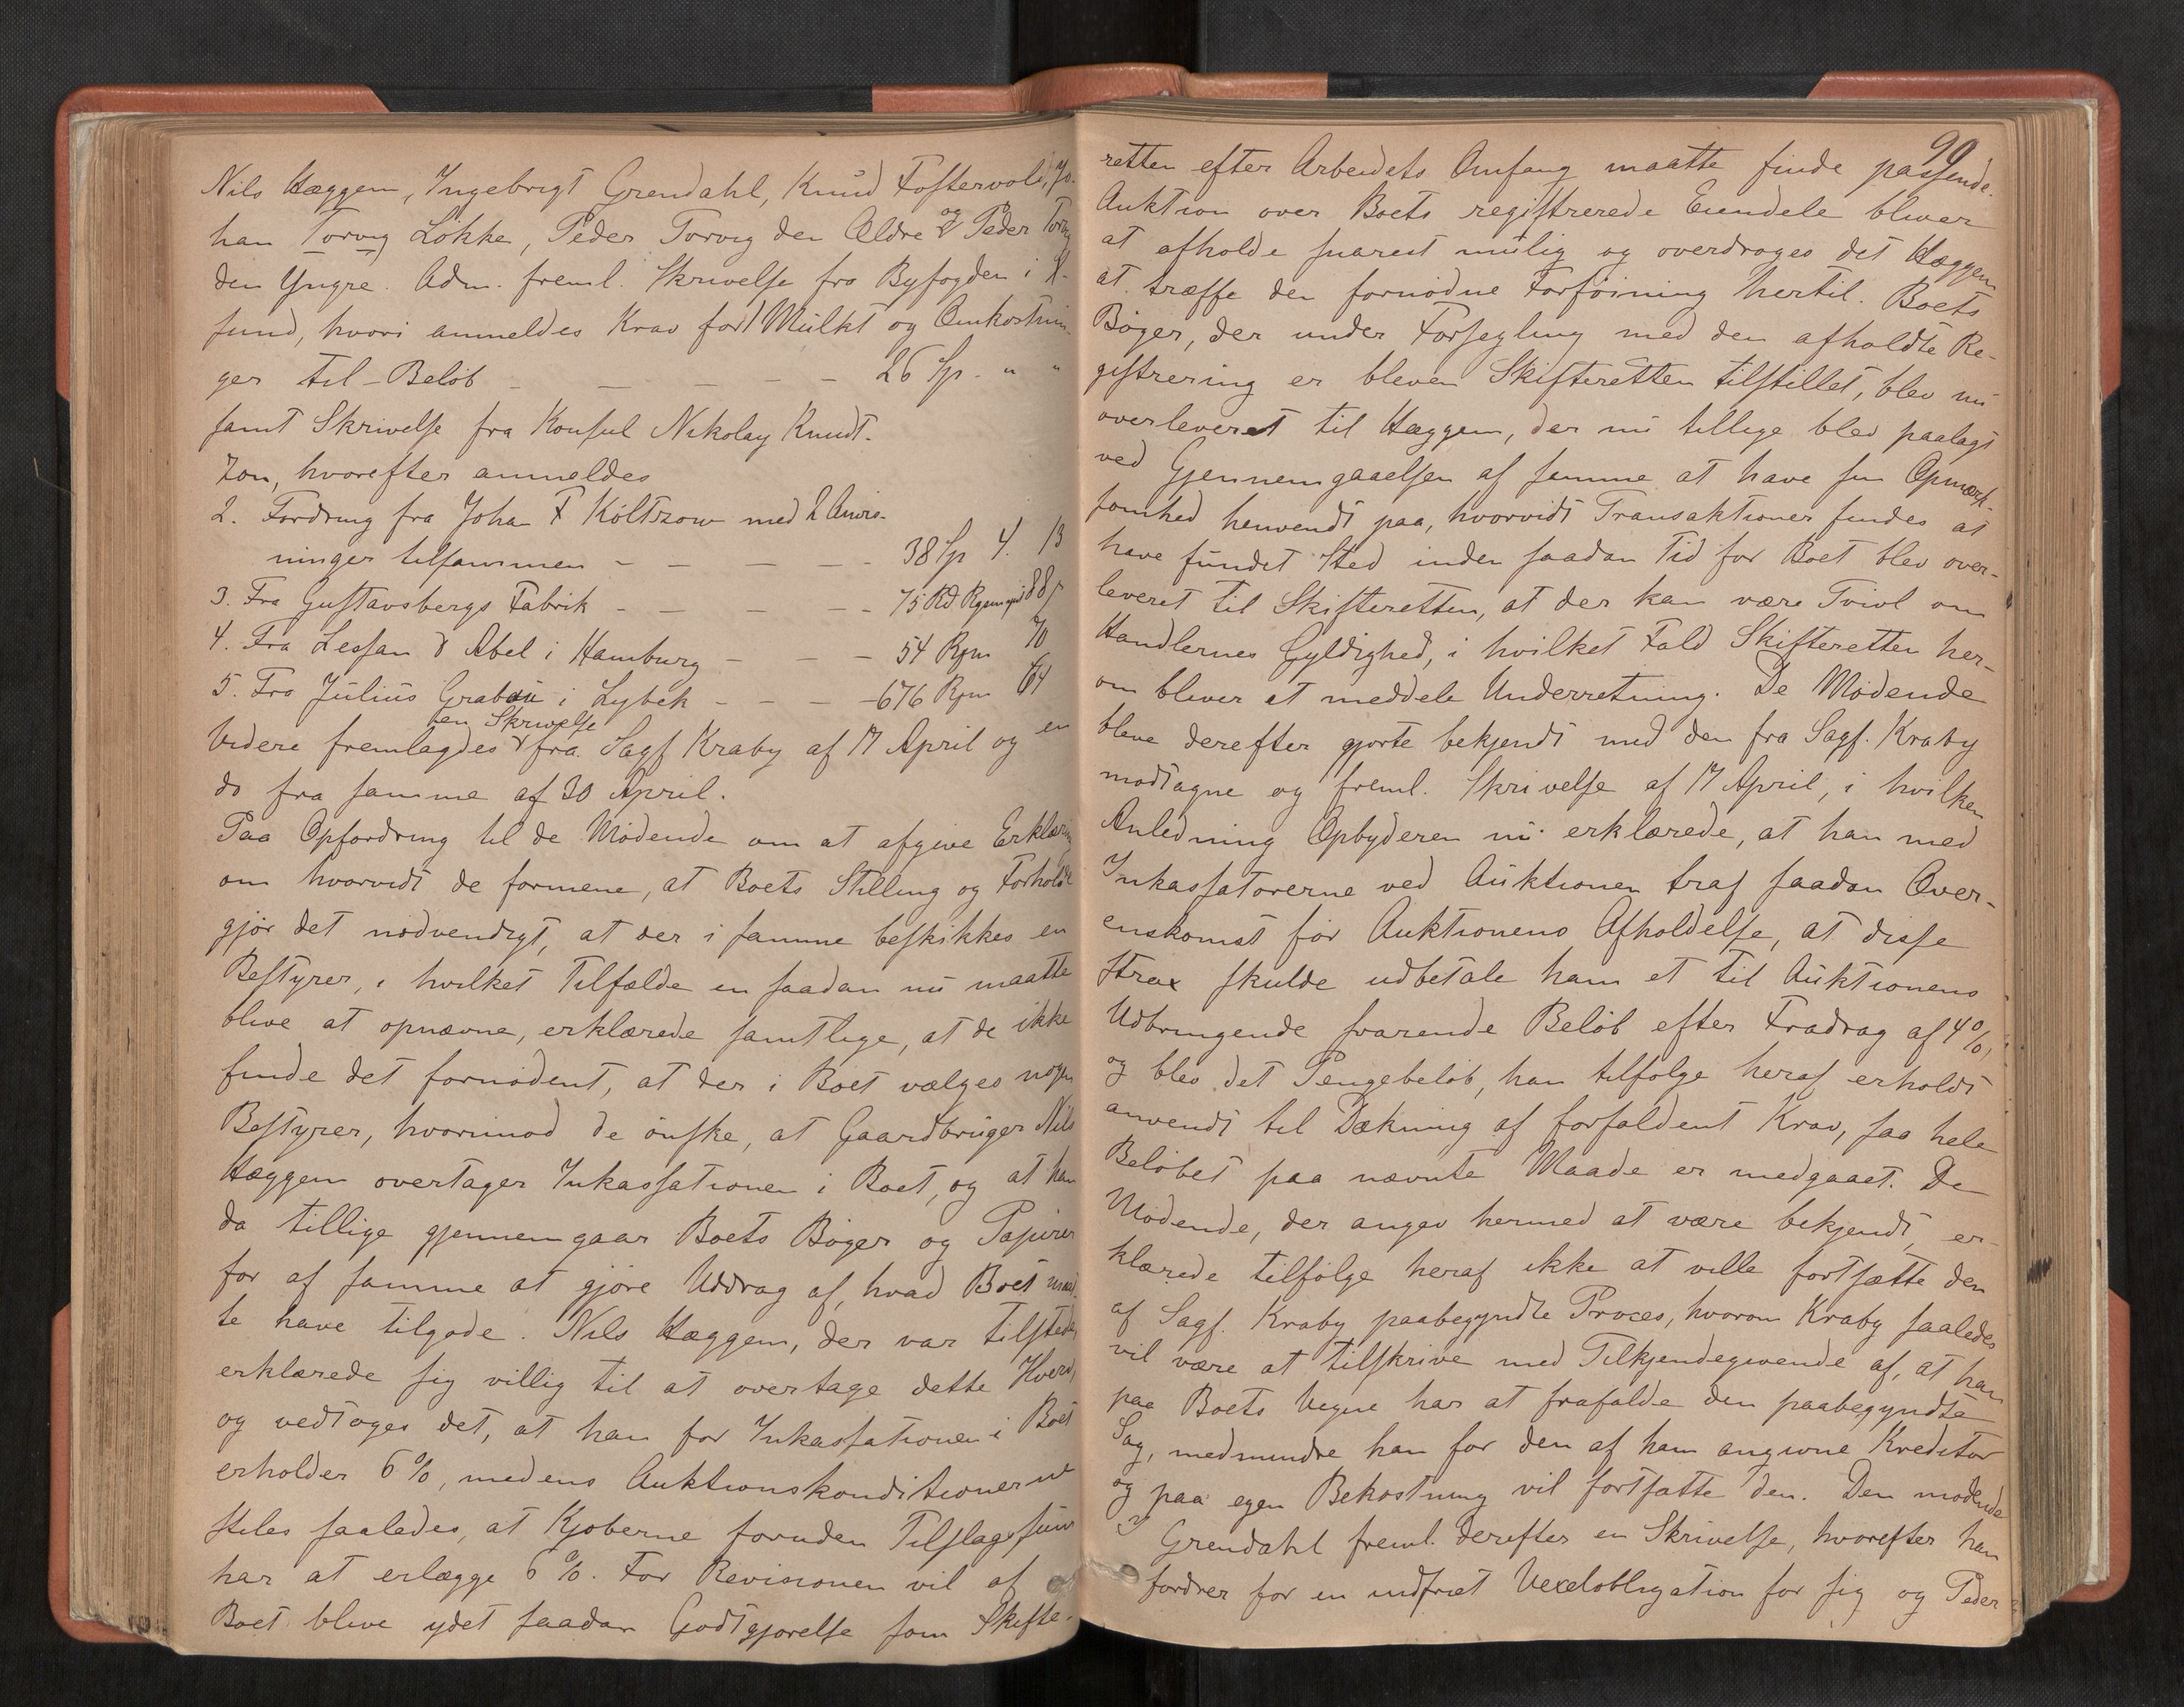 Nils Hæggem, Ingebrigt Grendahl, Knud Fostervold, Jo-
han Torvig Løkke, Peder Torvig den Ældre og Peder Torvig
den Yngre. Adm. freml. Skrivelse fra Byfogden i X-
sund, hvori anmeldes Krav for 1 Mulkt og Omkostnin-
ger til Beløb - - - - - 26 Sp. " "
samt Skrivelse fra Konsul Nikolay Knudt-
zon, hvorefter anmeldes
2. Fordring fra Joha F Költzow med 2 Anvis-
ninger tilsammen - - - - - 38 Sp 4. 13
3. Fra Gustavsbergs Fabrik - - - - - 75 Rd 88
4. Fra Lessan & Abel i Hamburg - - - 54 Rm 70
5. Fra Julius Grabau i Lybek - - - - 676 Rm 64
Videre fremlagdes en Skrivelse fra Sagf Kraby af 17 April og en
do fra samme af 30 April.
Paa Opfordring til de Mødende om at afgive Erklæring
om hvorvidt de formene, at Boets Stilling og Forholde
gjør det nødvendigt, at der i samme beskikkes en
Bestyrer, i hvilket Tilfælde en saadan nu maatte
blive at opnævne, erklærede samtlige, at de ikke
finde det fornødent, at der i Boet vælges nogen
Bestyrer, hvorimod de ønske, at Gaardbruger Nils
Hæggem overtager Inkassationen i Boet, og at han
da tillige gjennemgaar Boets Bøger og Papirer
for af samme at gjøre Uddrag af, hvad Boet maat-
te have tilgode. Nils Hæggem, der var tilstede,
erklærede sig villig til at overtage dette Hverv,
og vedtoges det, at han for Inkassationen i Boet
erholder 6 %, medens Auktionskonditionerne
stiles saaledes, at Kjøberne foruden Tilslagssum
har at erlægge 6 %. For Revisionen vil af
Boet blive ydet saadan Godtgjørelse som Skifte-
99
retten efter Arbeidets Omfang maatte finde passende.
Auktion over Boets registrerede Eiendele bliver
at afholde snarest mulig og overdroges det Hæggem
at træffe den fornødne Forføining hertil. Boets
Bøger, der under Forsegling med den afholdte Re-
gistrering er bleven Skifteretten tilstillet, blev nu
overleveret til Hæggem, der nu tillige blev paalagt
ved Gjennemgaaelsen af samme at have sin Opmærk-
somhed henvendt paa, hvorvidt Transaktioner findes at
have fundet Sted inden saadan Tid før Boet blev over-
leveret til Skifteretten, at der kan være Tvivl om
Handlernes Gyldighed, i hvilket Fald Skifteretten her-
om bliver at meddele Underretning. De Mødende
bleve derefter gjorte bekjendt med den fra Sagf. Kraby
modtagne og freml. Skrivelse af 17 April, i hvilken
Anledning Opbyderen nu erklærede, at han med
Inkassatorerne ved Auktionen traf saadan Over-
enskomst før Auktionens Afholdelse, at disse
strax skulde udbetale ham et til Auktionens
Udbringende svarende Beløb efter Fradrag af 4 %,
og blev det Pengebeløb, han tilfølge heraf erholdt
anvendt til Dækning af forfaldent Krav, saa hele
Beløbet paa nævnte Maade er medgaaet. De
Mødende, der angav hermed at være bekjendt, er-
klærede tilfølge heraf ikke at ville fortsætte den
af Sagf. Kraby paabegyndte Proces, hvorom Kraby saaledes
vil være at tilskrive med Tilkjendegivende af, at han
paa Boets Vegne har at frafalde den paabegyndte
Sag, medmindre han for den af ham angivne Kreditor
og paa egen Bekostning vil fortsætte den. Den mødende
Grendahl freml. derefter en Skrivelse, hvorefter han
fordrer for en indfriet Vexelobligation for sig og Peder